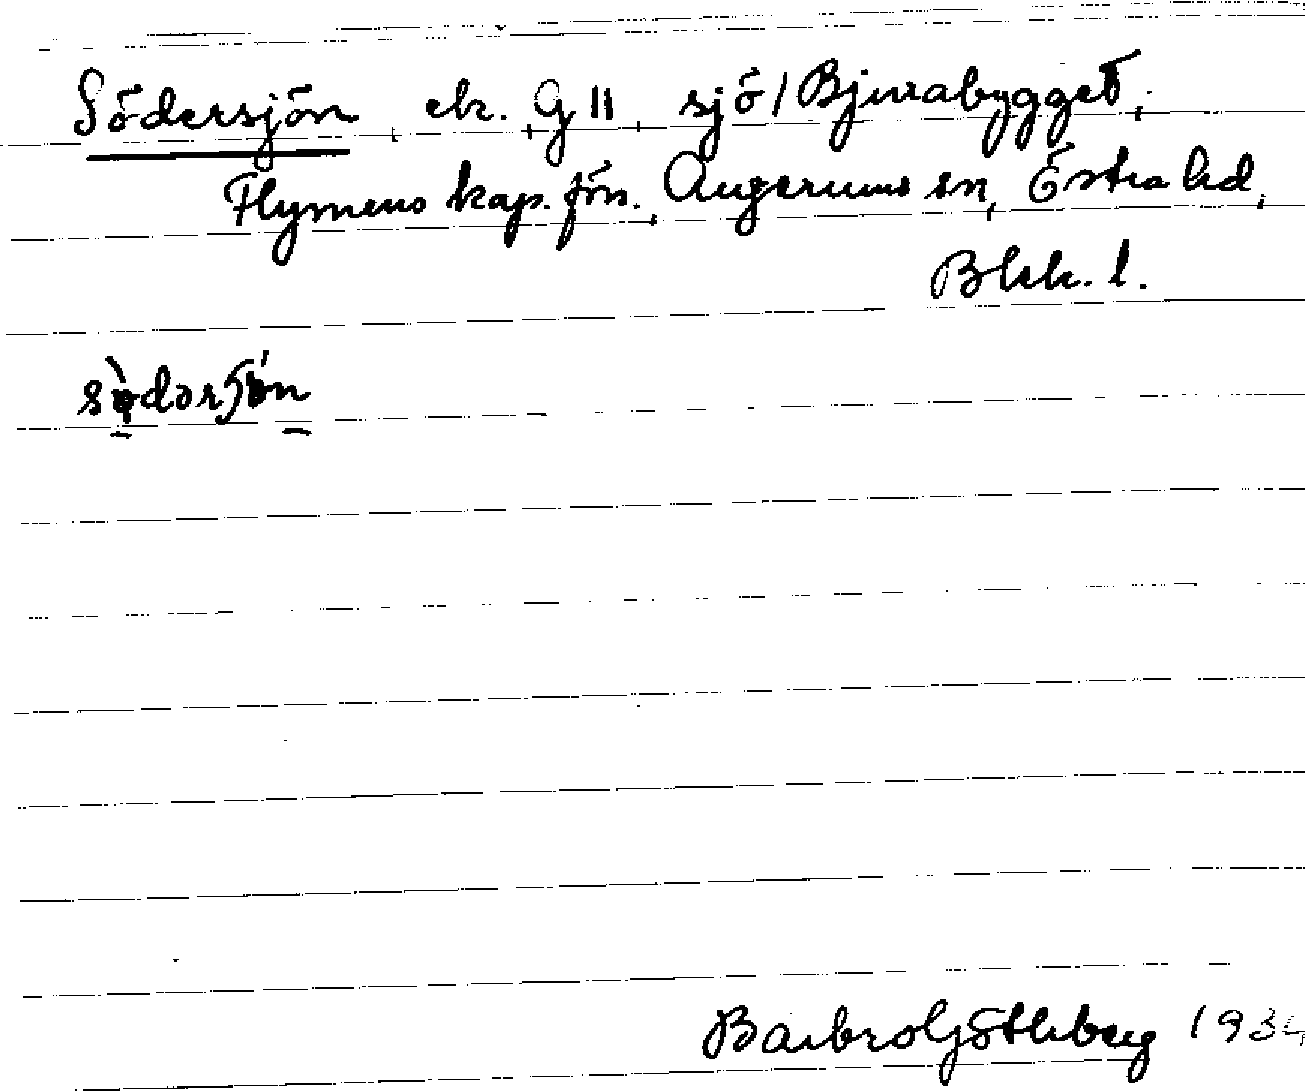 Södersjön, ek. G 11, sjö / Bjurabygget,
Flymens kap. fös., Augerums sn, Östra hd,
Blek. l.
Barbro Götlberg 1934